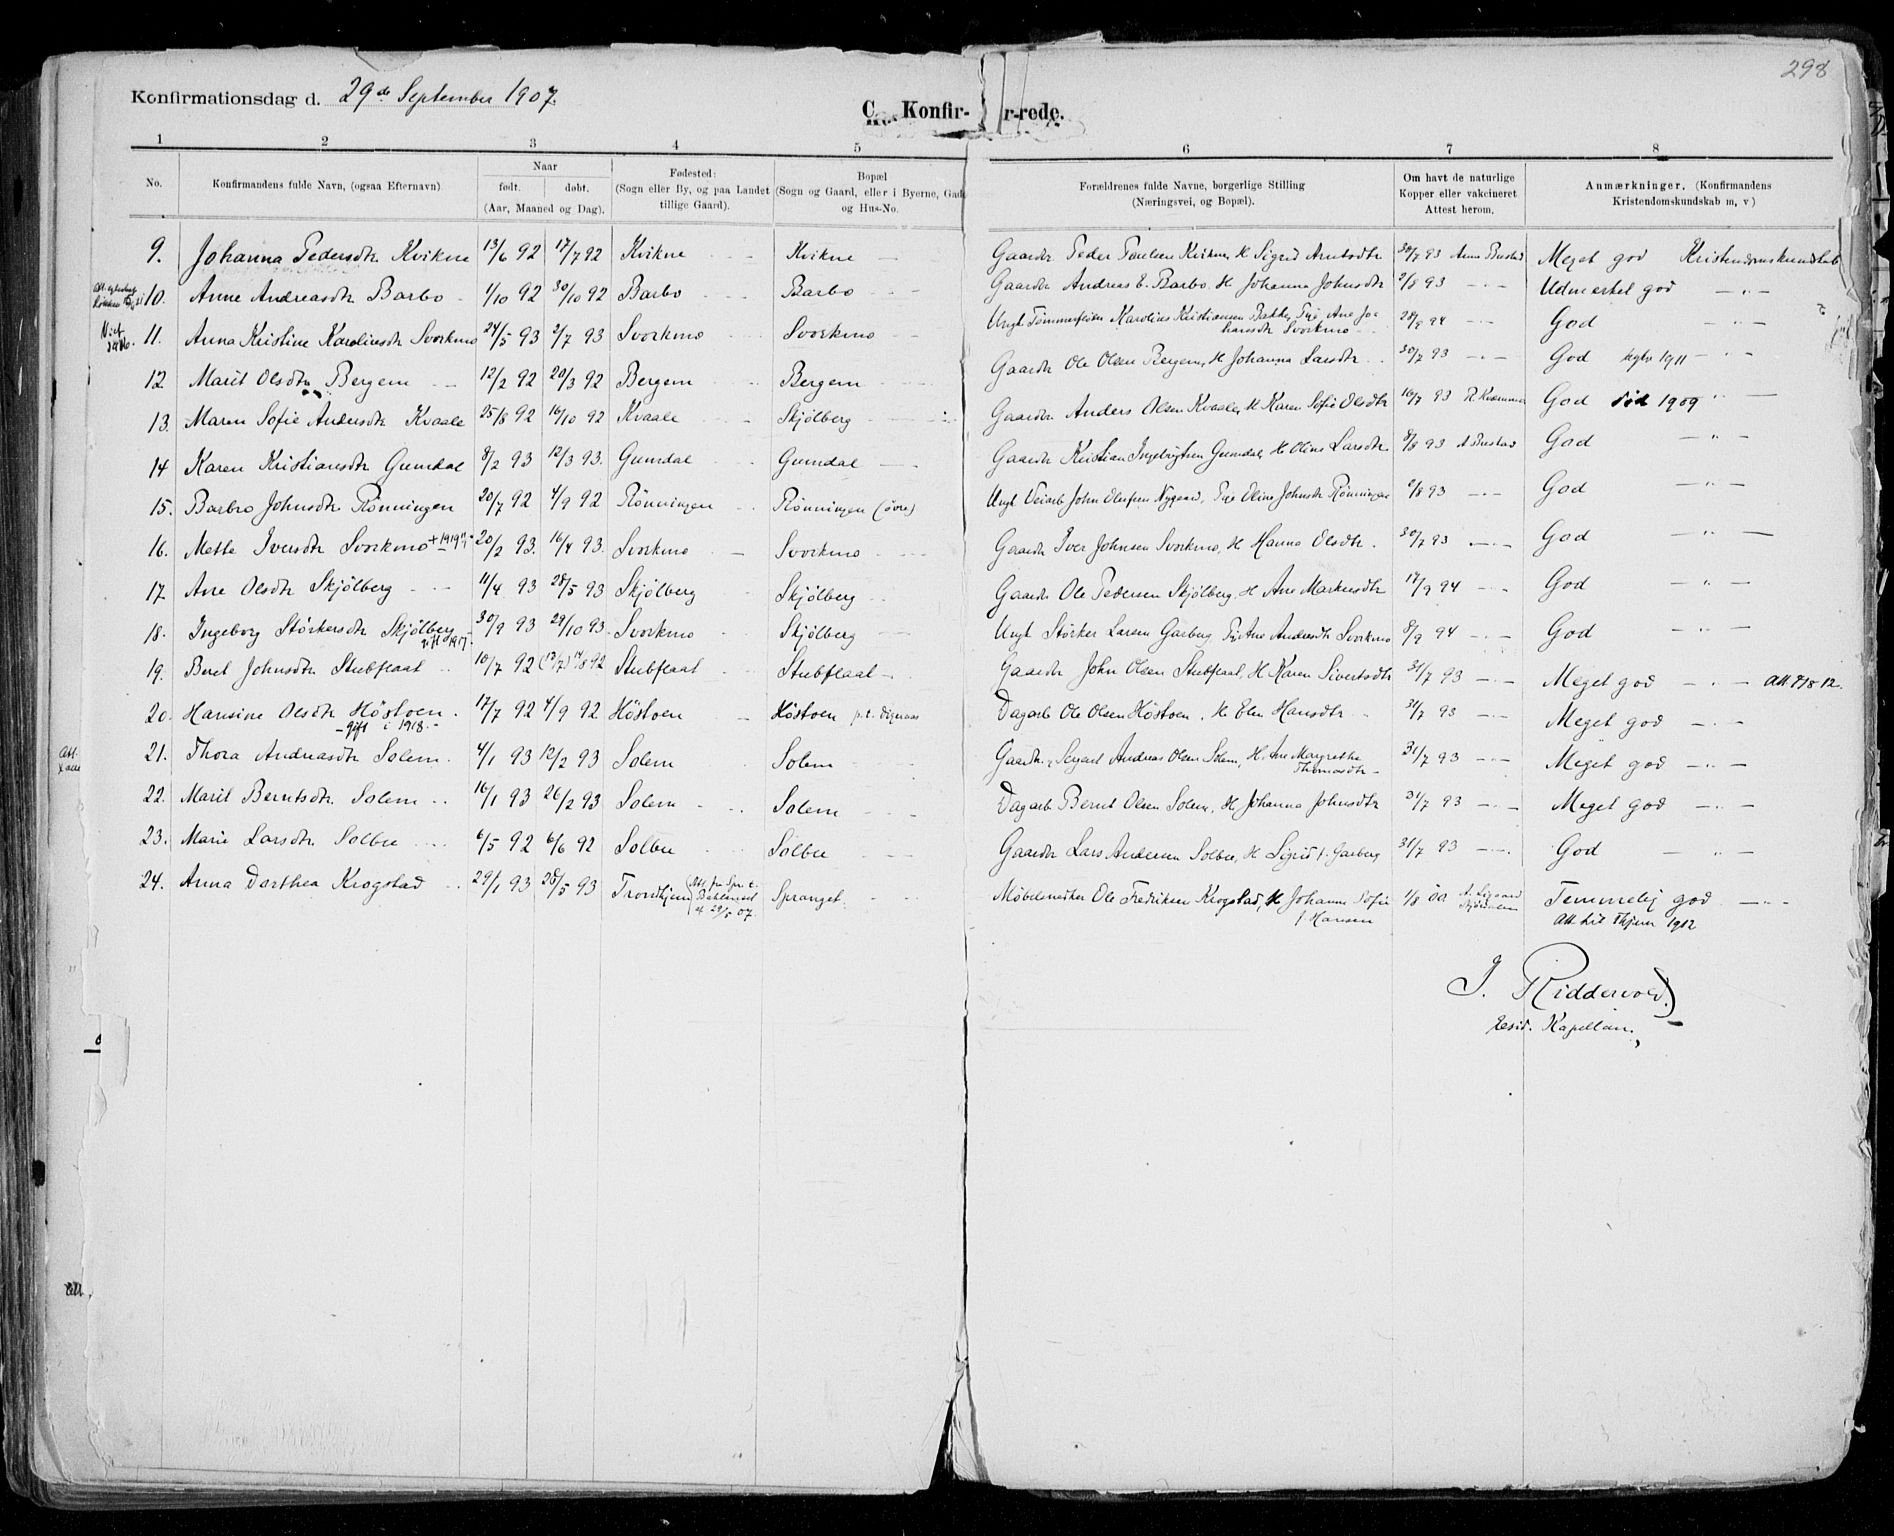 298
Konfirmationsdag d. 29de September 1907.
C. Konfir- r-rede.
1 2 3 4 5 6 7 8
No. Konfirmandens fulde Navn, (ogsaa Efternavn). Naar født. døbt. (Aar, Maaned og Dag). Fødested: (Sogn eller By, og paa Landet tillige Gaard). Bopæl (Sogn og Gaard, eller i Byerne, Gade og Hus-No. Forældrenes fulde Navne, borgerlige Stilling (Næringsvei, og Bopæl). Om havt de naturlige Kopper eller vakcineret Attest herom. Anmærkninger. (Konfirmandens Kristendomskundskab m, v)
9. Johanna Pedersdtr Kvikne 13/6 92 17/7 92 Kvikne Kvikne Gaardbr Peder Paulsen Kvikne, H Sigrid Arntsdtr 30/7 93 Anne Bustad Meget god Kristendomskundskab
10. Anne Andreasdtr Barbo 1/10 92 30/10 92 Barbo Barbo Gaardbr Andreas E. Barbo. H Johanna Johnsdtr 2/8 93 -"- Udmerket god -"-
11. Anna Kristine Karolinsdtr Svorkmo 24/5 93 2/7 93 Svorkmo Svorkmo Ungk Tømmerfløder Karolius Kristiansen Bakke, Pige Ane Johansdtr Svorkmo 28/9 94 -"- God -"-
12. Marit Olsdtr Bergem 12/2 92 20/3 92 Bergem Bergem Gaardbr Ole Olsen Bergem, H Johanna Larsdtr 30/7 93 -"- God 1911 -"-
13. Maren Sofie Andersdtr Kvaale 25/8 92 16/10 92 Kvaale Skjølberg Gaardbr Anders Olsen Kvaale, H Karen Sofie Olsdtr 16/7 93 God død 1909 -"-
14 Karen Kristiansdtr Gumdal 8/2 93 12/3 93. Gumdal Gumdal Gaardbr Kristian Ingebrigtsen Gumdal, H Oline Larsdtr 8/8 93 A Bustad God -"-
15. Barbro Johnsdtr Rønningen 20/7 92 4/9 92 Rønningen Rønningen (øvre) Ungk Veiarb John Olufsen Nygaard, Pige Oline Johnsdtr Rønningen 2/8 93 -"- God -"-
16. Mette Iversdtr Svorkmo + 1919 20/2 93. 16/4 93. Svorkmo Svorkmo Gaardbr Iver Johnsen Svorkmo, H Hanna Olsdtr. 30/7 93 -"- God -"-
17. Ane Olsdtr Skjølberg 11/4 93 28/5 93 Skjølberg Skjølberg Gaardbr Ole Pedersen Skjølberg, H Ane Markusdtr 17/9 94 -"- God -"-
18. Ingeborg Størkersdtr Skjølberg 1917 30/9 93 29/10 93. Svorkmo Skjølberg Ungk Størker Larsen Garberg Pige Ane Andersdtr Svorkmo 8/9 94 -"- God -"-
19. Beret Johnsdtr Stubflaat 10/7 92 (17/7) 14/8 92 Stubflaat Stubflaat Gaardbr John Olsen Stubflaat, H Karen Sivertsdtr 31/7 93 -"- Meget god -"- Att. 7/8 12.
20. Hansine Olsdtr Høstoen. 17/7 92 4/9 92 Høstoen Høstoen p.t. Digeraas Dagarb Ole Olsen Høstoen. H Elen Hansdtr 31/7 93 -"- Meget god -"-
-gift i 1918-
21. Thora Andreasdtr Solem. 4/1 93 12/2 93 Solem Solem Gaardbr. Andreas Olsen Solem, H. Ane Margrethe Thomasdtr 31/7 93 -"- Meget god -"-
22. Marit Berntsdtr Solem 16/1 93 26/2 93 Solem Solem Dagarb Bernt Olsen Solem, H Johanna Johnsdtr 31/7 93 -"- Meget god -"-
23. Marie Larsdtr Solbu 6/5 92 6/6 92 Solbu Solbu Gaardbr Lars Andersen Solbu, H Sigrid f. Garberg 31/7 93 -"- God -"-
24. Anna Dorthea Krogstad 29/1 93 28/5 93 Trondhjem (Att. fra Spr. t. Baklandet af 29/5 07. Spranget Møbelsnedker Ole Fredriksen Krogstad, H Johanne Sofie f. Hansen 1/8 00 Temmelig god -"-
Att. til Thjem 1912
J. Riddervold.
Resid. Kapellan.
Att.